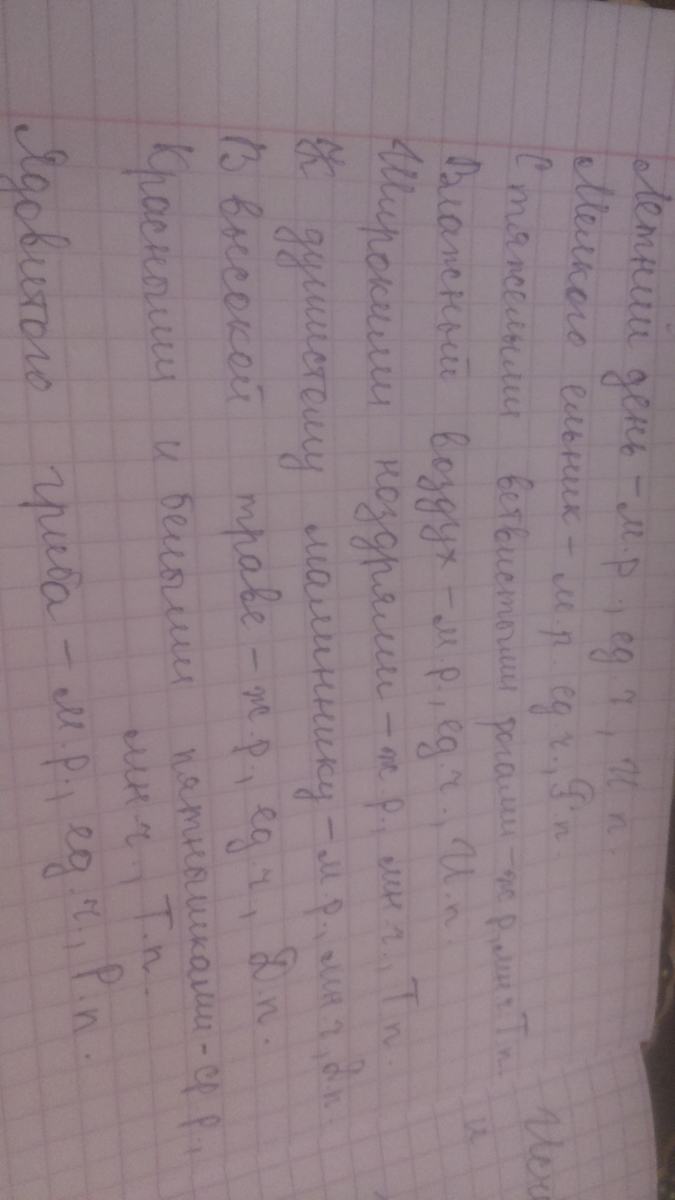 Летний день – м.р., ед.ч., И.п.
Мелкого ельник – м.р. ед.ч., Р.п.
С тяжелыми ветвистыми рогами – ж.р., мн.ч Т.п.
Влажный воздух – м.р., ед.ч., И.п.
Широкими ноздрями – ж.р., мн.ч., Т.п.
К душистому малиннику – м.р., мн.ч, Д.п.
В высокой траве – ж.р., ед.ч, Д.п.
Красными и белыми пятнышками – ср.р.,
мн.ч., Т.п.
Ядовитого гриба – м.р., ед.ч., Р.п.
и